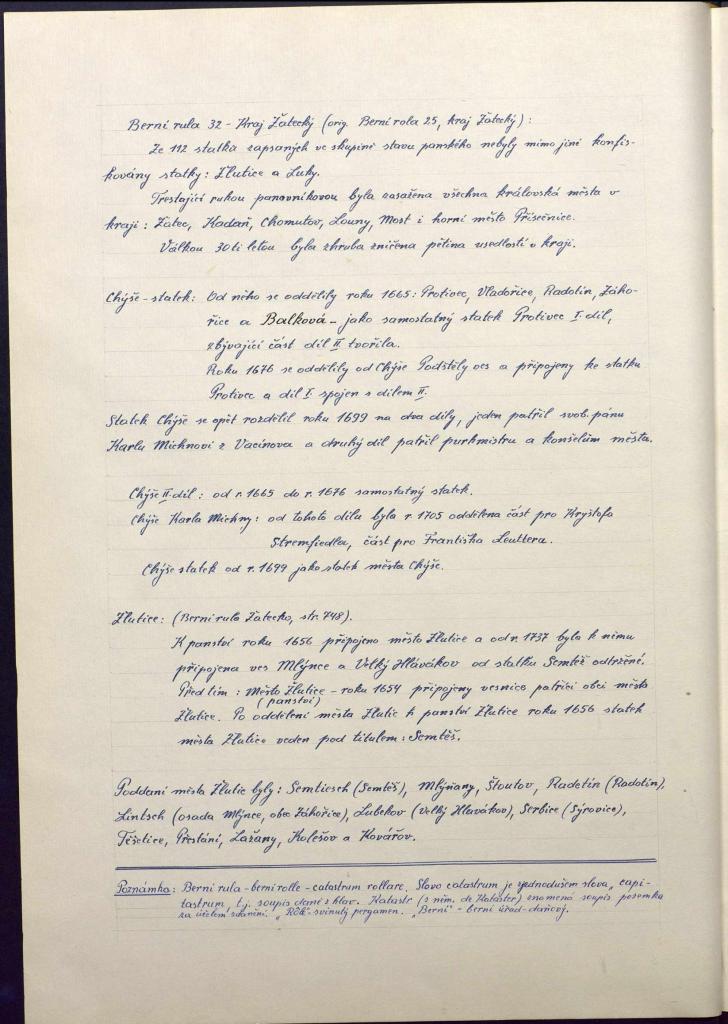 Berní rula 32 - Kraj Žatecký (orig. Berní rola 25, kraj Žatecký):
Ze 112 statků zapsaných ve skupině stavu panského nebyly mimo jiné konfis-
kovány statky: Žlutice a Luky.
Trestající rukou panovníkovou byla zasažena všechna královská města v
kraji: Žatec, Kadaň, Chomutov, Louny, Most i horní město Přísečnice.
Válkou 30ti letou byla zhruba zničena pětina usedlostí v kraji.
Chýše-statek: Od něho se oddělily roku 1665: Protivec, Vladořice, Radotín, Záho-
řice a Balková - jako samostatný statek Protivec I. díl,
zbývající část díl II. tvořila.
Roku 1676 se oddělily od Chýše Podštěly ves a připojeny ke statku
Protivec a díl I. spojen s dílem II.
Statek Chýše se opět rozdělil roku 1699 na dva díly, jeden patřil svob. pánu
Karlu Michnovi z Vacínova a druhý díl patřil purkmistru a konšelům města.
Chýše II. díl: od r. 1665 do r. 1676 samostatný statek.
Chýše Karla Michny: od tohoto dílu byla r. 1705 oddělena část pro Kryštofa
Stremfiedla, část pro Františka Leuttera.
Chýše statek od r. 1699 jako statek města Chýše.
Žlutice: (Berní rula Žatecko, str. 748).
K panství roku 1656 připojeno město Žlutice a od r. 1737 byla k němu
připojena ves Mlýnce a Velký Hlávákov od statku Semtěš odtržené.
Před tím: Město Žlutice - roku 1654 připojeny vesnice patřící obci města
(panství)
Žlutice. Po oddělení města Žlutic k panství Žlutice roku 1656 statek
města Žlutice veden pod titulem: Semtěš.
Poddaní města Žlutic byly: Semtiesch (Semtěš), Mlýňany, Štoutov, Radetin (Radotín),
Lintsch (osada Mlýnce, obec Záhořice), Lubekov (Velký Hlavákov), Serbice (Sýrovice),
Těšetice, Přestání, Lažany, Kolešov a Kovářov.
Poznámka: Berní rula - berní rolle - catastrum rollare. Slovo catastrum je zjednodušem slova „capi-
tastrum, t.j. soupis daně z hlav. Katastr (s něm. de Kataster) znamená soupis pozemků
za účelem zdanění. „Rôle"- svinutý pergamen. „Berní" - berní úřad - daňový.